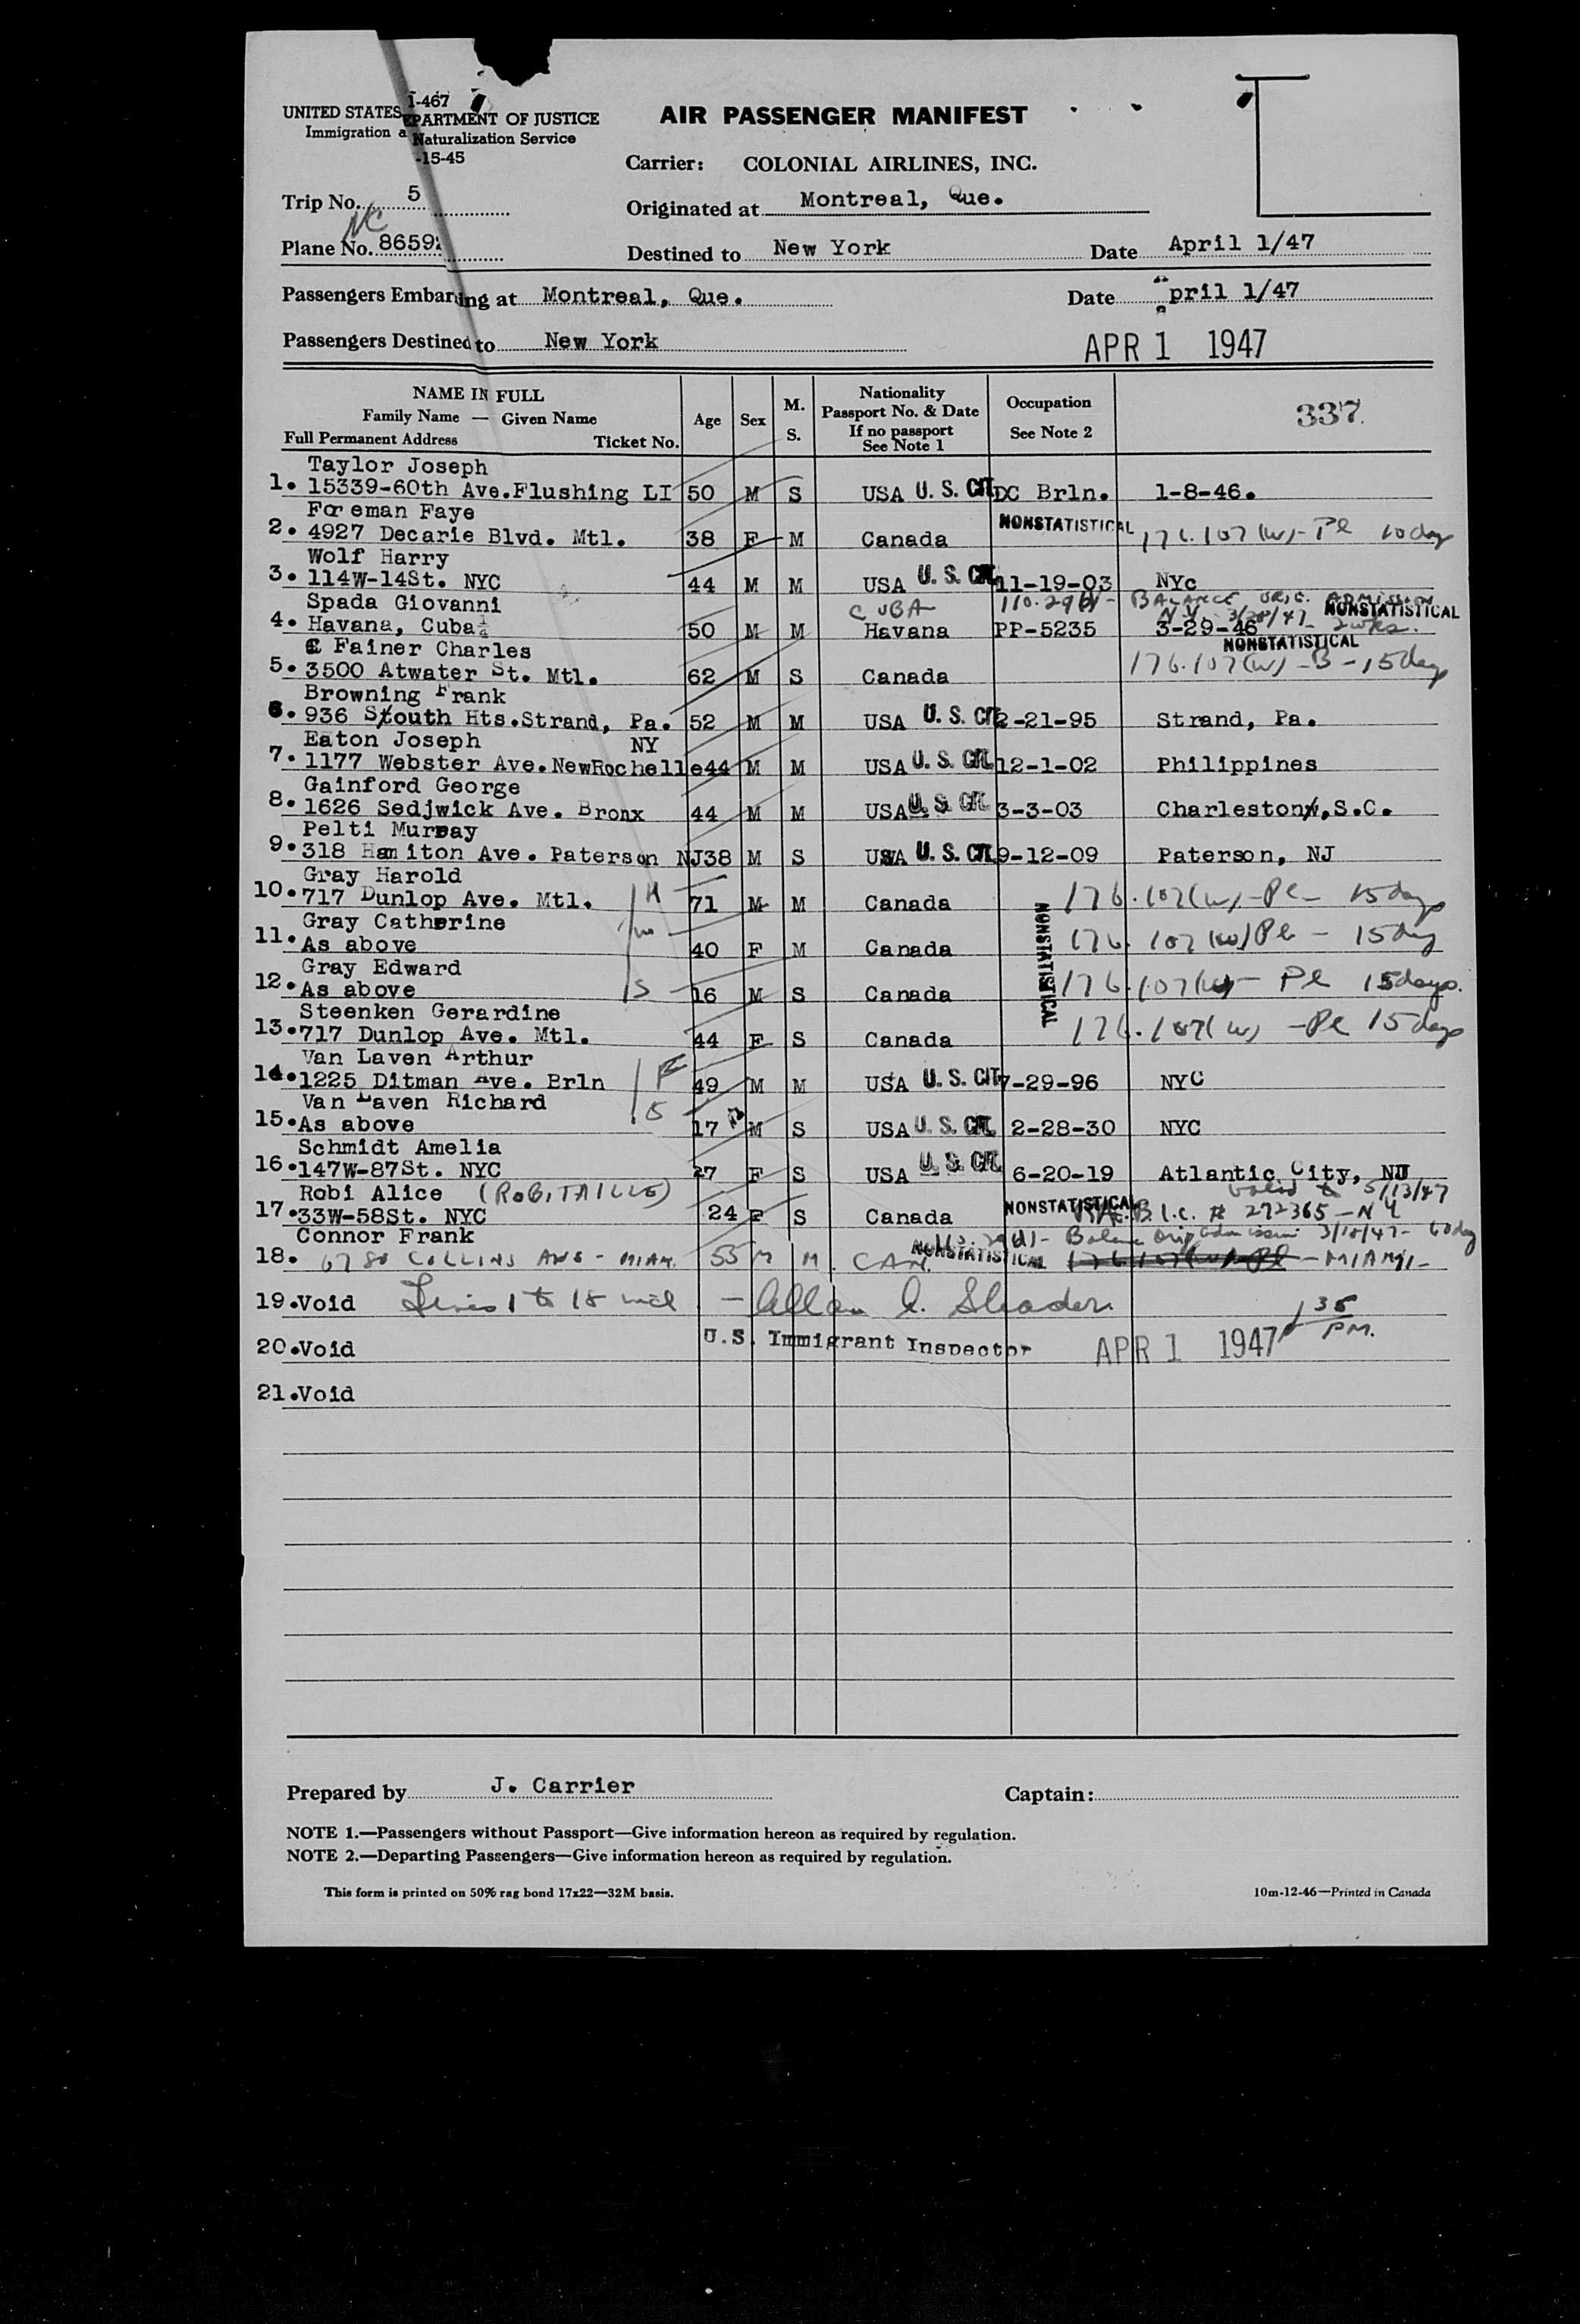 I-467
UNITED STATES DEPARTMENT OF JUSTICE
Immigration a Naturalization Service
-15-45
AIR PASSENGER MANIFEST
Carrier: COLONIAL AIRLINES, INC.
Trip No. 5
Originated at Montreal, Que.
NC
Plane No. 8659
Destined to New York Date April 1/47
Passengers Embarking at Montreal, Que. Date April 1/47
Passengers Destined to New York
APR 1 1947
NAME IN FULL
Family Name — Given Name
Full Permanent Address Ticket No.
Age Sex M. S.
Nationality Passport No. & Date If no passport See Note 1
Occupation See Note 2
337
Taylor Joseph
1. 15339-60th Ave.Flushing LI 50 M S USA U. S. CIT. DC Brln. 1-8-46.
Foreman Faye
2. 4927 Decarie Blvd. Mtl. 38 F M Canada NONSTATISTICAL 176.107(w)-Pl 10 day
Wolf Harry
3. 114W-14St. NYC 44 M M USA U. S. CIT. 11-19-03 NYc
Spada Giovanni CUBA 110.29 BALANCE ORIG. ADMISSION
N.Y. 3/28/47 - 2 wks. NONSTATISTICAL
4. Havana, Cuba 50 M M Havana PP-5235 3-29-46
Fainer Charles NONSTATISTICAL
5. 3500 Atwater St. Mtl. 62 M S Canada 176.107(w)-B-15 days
Browning Frank
6. 936 South Hts.Strand, Pa. 52 M M USA U. S. CIT. 2-21-95 Strand, Pa.
Eaton Joseph NY
7. 1177 Webster Ave.NewRochelle 44 M M USA U. S. CIT. 12-1-02 Philippines
Gainford George
8. 1626 Sedjwick Ave. Bronx 44 M M USA U. S. CIT. 3-3-03 Charleston,S.C.
Pelti Murray
9. 318 Hamiton Ave. Paterson NJ 38 M S USA U. S. CIT. 9-12-09 Paterson, NJ
Gray Harold
10. 717 Dunlop Ave. Mtl. H 71 M M Canada 176.107(w)-Pl- 15 days
Gray Catherine
11. As above W 40 F M Canada 176.107(w)Pl - 15 day
Gray Edward
12. As above S 16 M S Canada 176.107(w)- Pl 15 days.
NONSTATISTICAL
Steenken Gerardine
13. 717 Dunlop Ave. Mtl. 44 F S Canada 176.107(w)-Pl 15 days
Van Laven Arthur
14. 1225 Ditman Ave. Brln F 49 M M USA U. S. CIT. 7-29-96 NYC
Van Laven Richard
15. As above S 17 M S USA U. S. CIT. 2-28-30 NYC
Schmidt Amelia
16. 147W-87St. NYC 27 F S USA U. S. CIT. 6-20-19 Atlantic City, NJ
Robi Alice (ROBITAILLE) Valid to 5/13/47
17. 33W-58St. NYC 24 F S Canada NONSTATISTICAL B.I.c. # 272365-NY
Connor Frank Balance orig admission 3/18/47- 60 day
18. 6780 COLLINS AVE - MIAM. 55 M M CAN. NONSTATISTICAL 176.107(w)-Pl - MIAMI-
19. Void Lines 1 to 18 incl - Allan
20. Void U.S. Immigrant Inspector APR 1 1947 1 35 PM.
21. Void
Prepared by J. Carrier Captain:
NOTE 1.—Passengers without Passport—Give information hereon as required by regulation.
NOTE 2.—Departing Passengers—Give information hereon as required by regulation.
This form is printed on 50% rag bond 17x22—32M basis. 10m-12-46—Printed in Canada